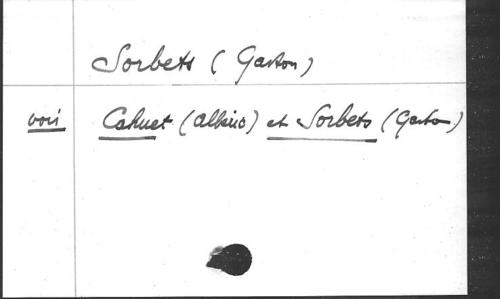 Sorbets (Gaston)
voir Cahuet (Albéric) et Sorbets (Gaston)